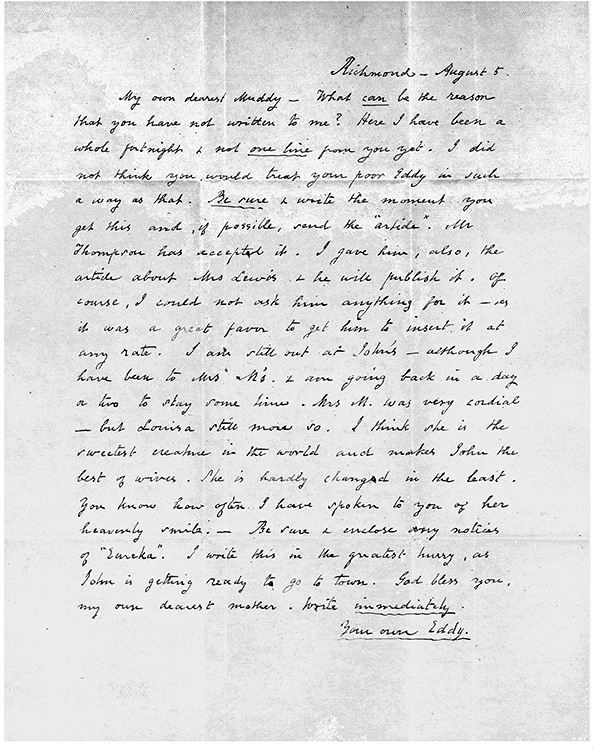 Richmond – August 5.
My own dearest Muddy – What can be the reason
that you have not written to me? Here I have been a
whole fortnight & not one line from you yet. I did
not think you would treat your poor Eddy in such
a way as that. Be sure & write the moment you
get this and, if possible, send the "article". Mr
Thompson has accepted it. I gave him, also, the
article about Mrs Lewis & he will publish it. Of
course, I could not ask him anything for it – as
it was a great favor to get him to insert it at
any rate. I am still out at John's – although I
have been to Mrs M's & am going back in a day
or two to stay some time. Mrs M. was very cordial
– but Louisa still more so. I think she is the
sweetest creature in the world and makes John the
best of wives. She is hardly changed in the least.
You know how often I have spoken to you of her
heavenly smile. – Be sure & enclose any notices
of "Eureka". I write this in the greatest hurry, as
John is getting ready to go to town. God bless you,
my own dearest mother. Write immediately.
Your own Eddy.